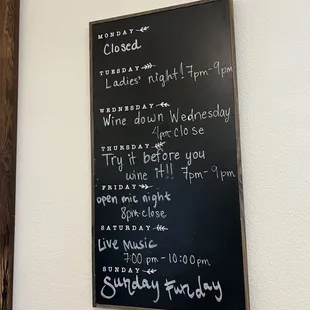 MONDAY
Closed
TUESDAY
Ladies' night! 7pm-9pm
WEDNESDAY
Wine down Wednesday
4pm-close
THURSDAY
Try it before you
wine it!! 7pm-9pm
FRIDAY
open mic night
8pm-close
SATURDAY
Live Music
7:00 pm - 10:00pm
SUNDAY
Sunday Funday